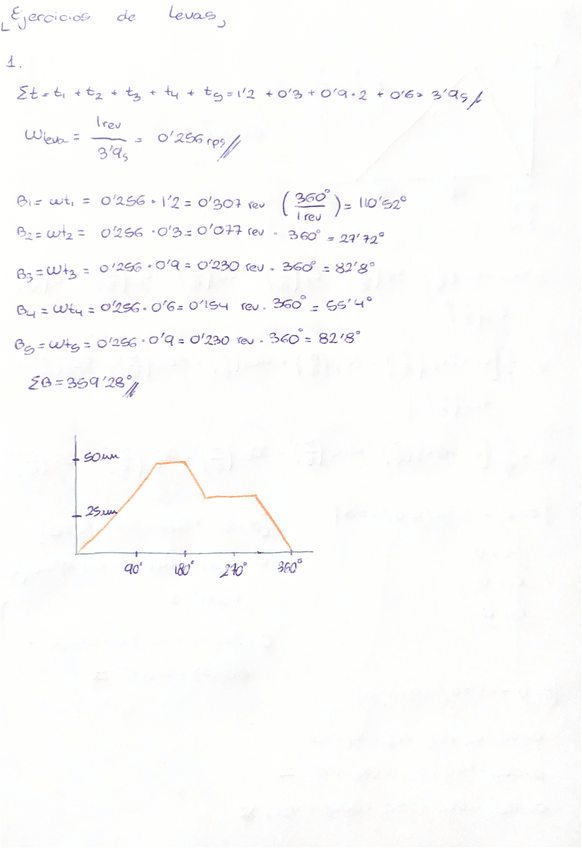 Ejercicios de Levas
1.
Σt = t1 + t2 + t3 + t4 + t5 = 1'2 + 0'3 + 0'9·2 + 0'6 = 3'9s
Wleva = 1rev / 3'9s = 0'256 rps
B1 = wt1 = 0'256 · 1'2 = 0'307 rev (360° / 1rev) = 110'52°
B2 = wt2 = 0'256 · 0'3 = 0'077 rev · 360° = 27'72°
B3 = wt3 = 0'256 · 0'9 = 0'230 rev · 360° = 82'8°
B4 = wt4 = 0'256 · 0'6 = 0'154 rev · 360° = 55'4°
B5 = wt5 = 0'256 · 0'9 = 0'230 rev · 360° = 82'8°
ΣB = 359'28°
50mm
25mm
90° 180° 270° 360°